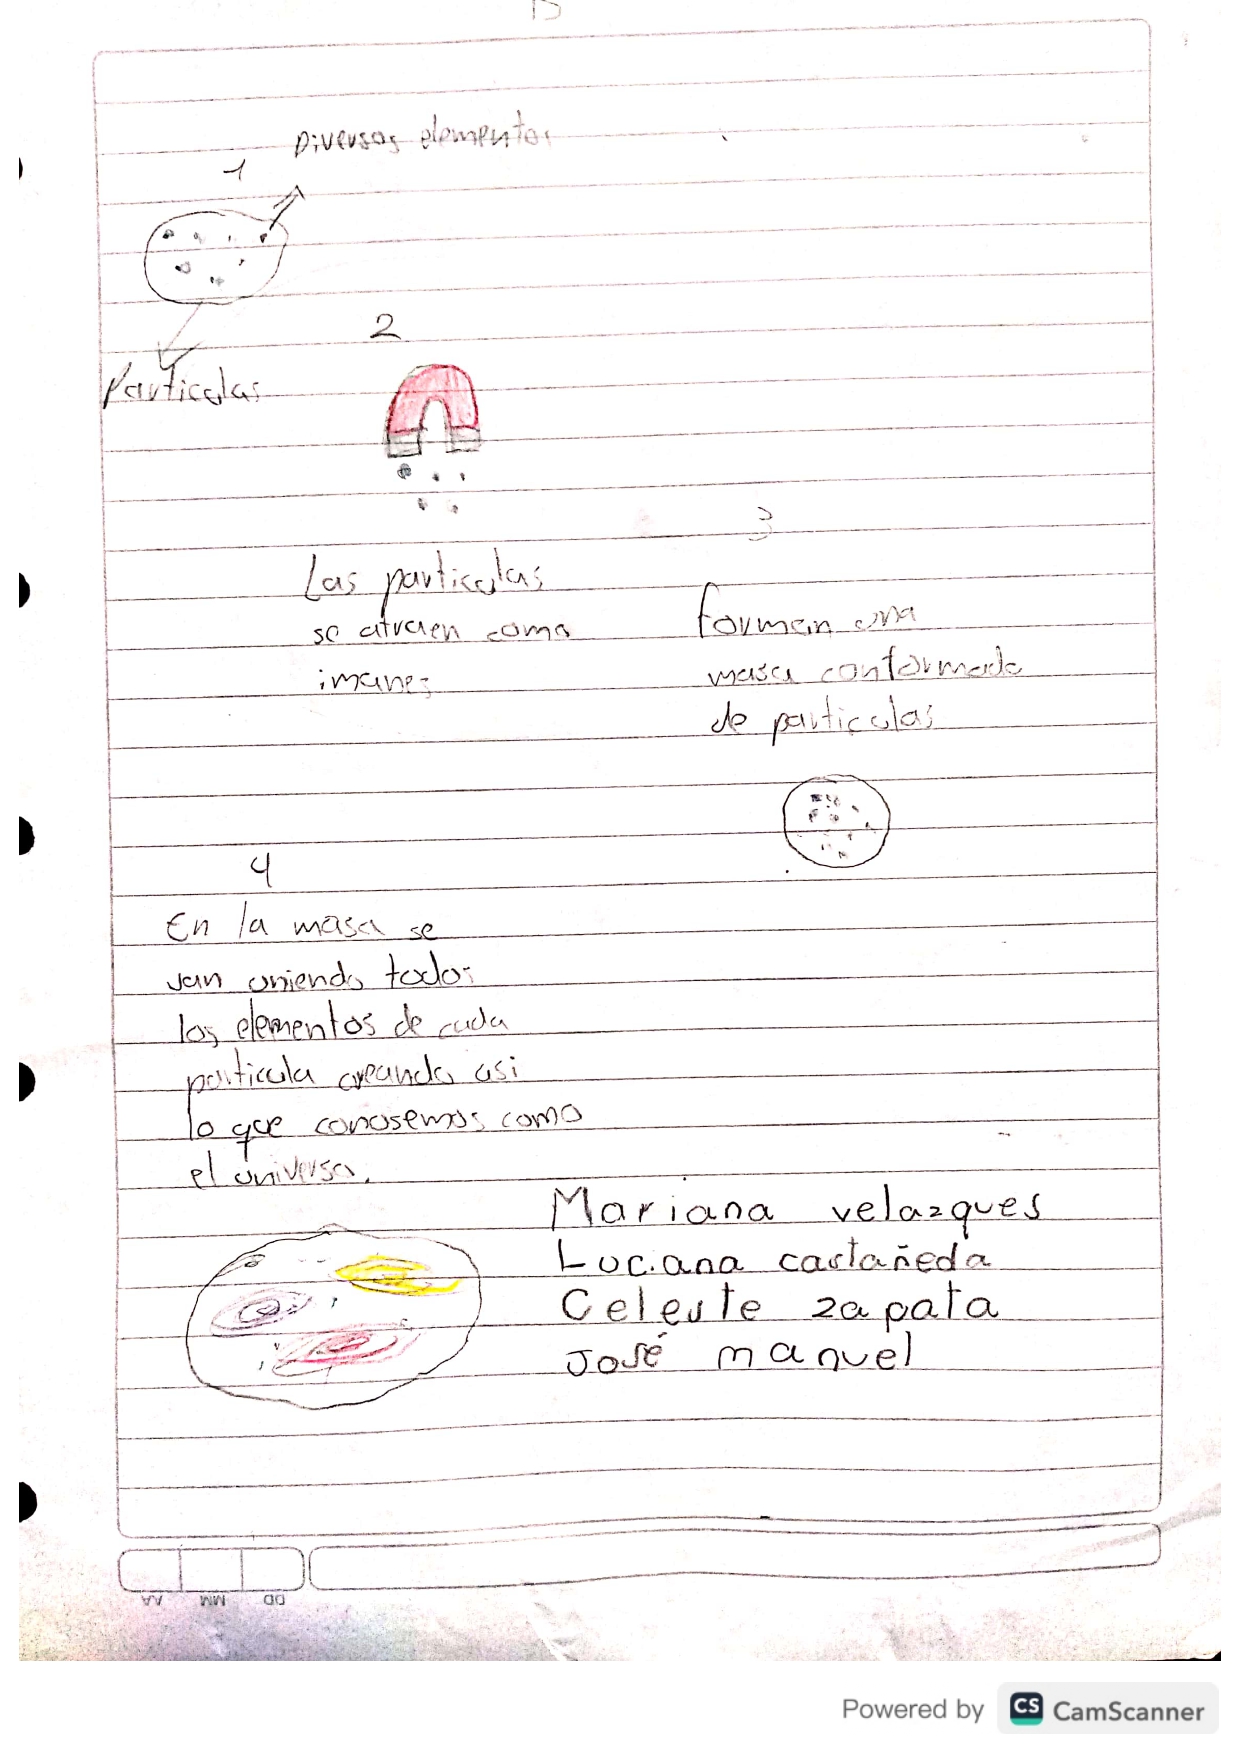 1
Diversos elementos
Particulas
2
Las particulas
se atraen como
imanes
3
formen una
masa conformada
de particulas
4
En la masa se
van uniendo todos
los elementos de cada
particula creando asi
lo que conosemos como
el universo.
Mariana velazques
Luciana castañeda
Celeste zapata
José manuel
AA MM DD
Powered by CS CamScanner